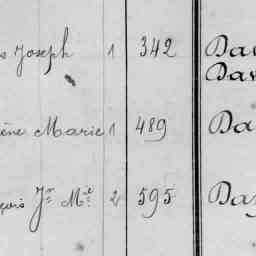 s Joseph 1 342 Dav
Dav
ène Marie 1 489 Da
çois Jn Me 2 595 Da